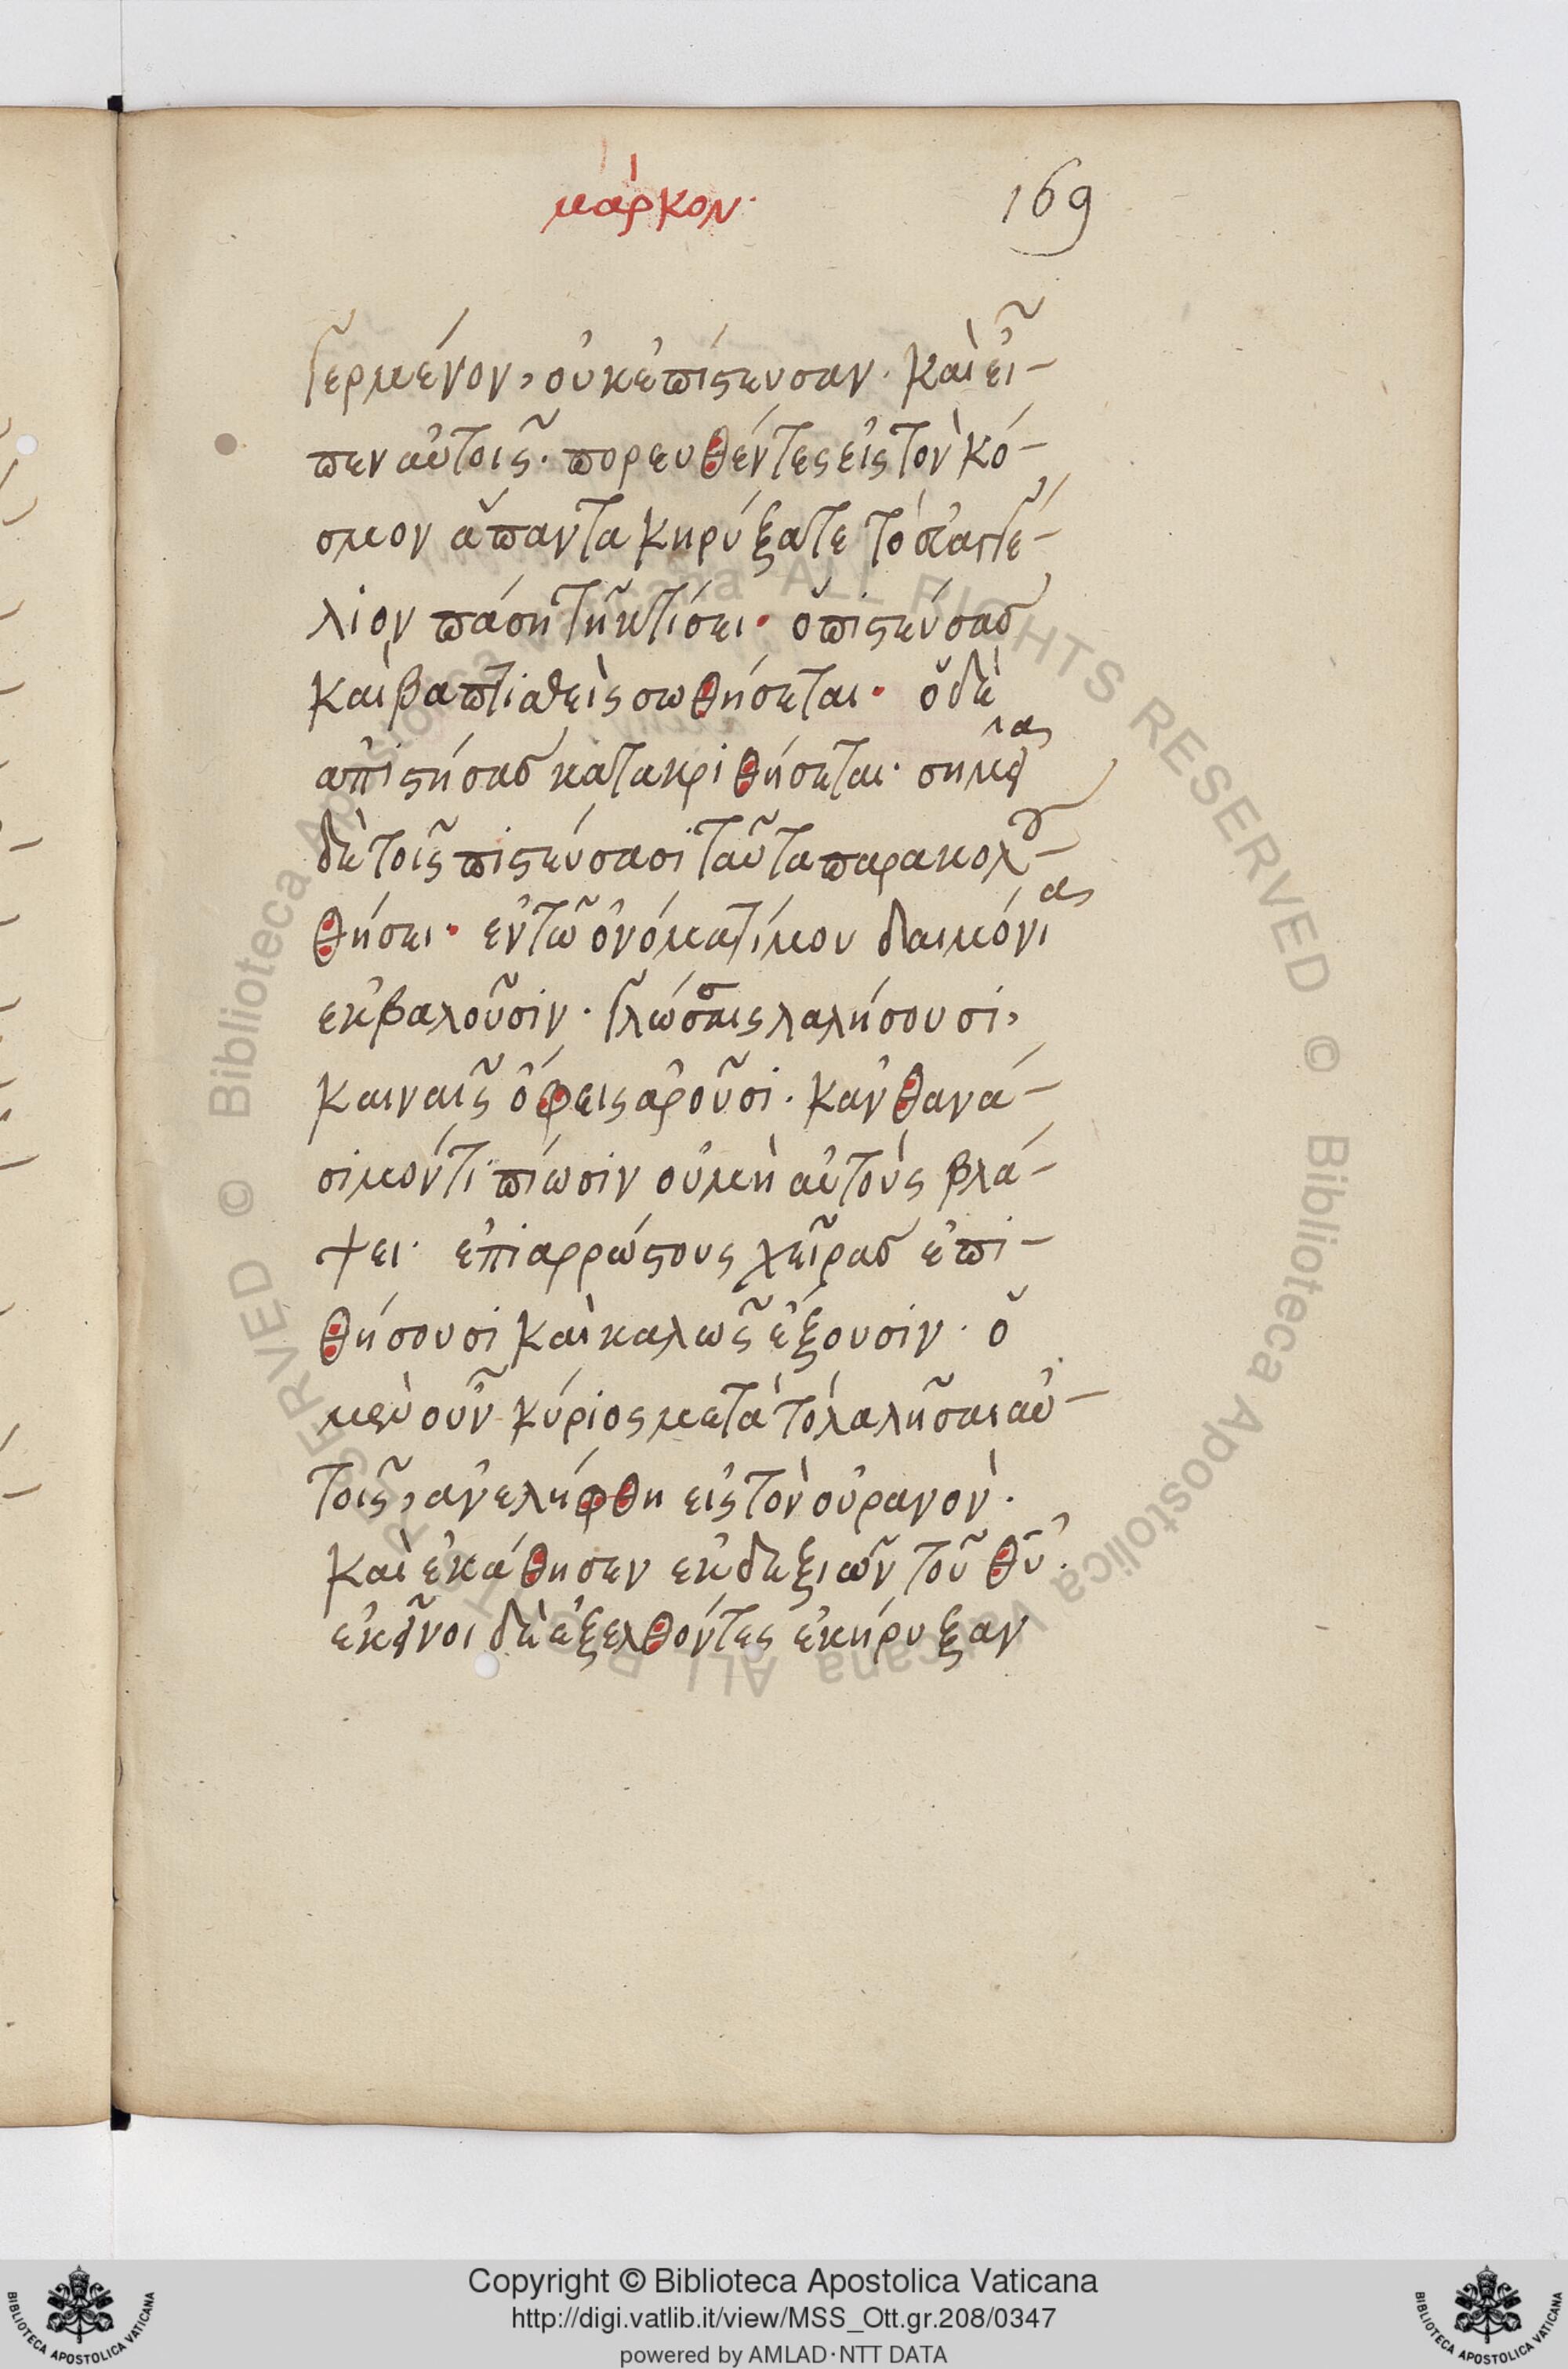 μάρκον·
169
γερμένον, οὐκ ἐπίστευσαν. καὶ εἶ-
πεν αὐτοῖς. πορευθέντες εἰς τὸν κό-
σμον ἅπαντα κηρύξατε τὸ εὐαγγέ-
λιον πάση τῆ κτίσει. ὁ πιστεύσας
καὶ βαπτισθεὶς σωθήσεται. ὁ δὲ
ἀπιστήσας κατακριθήσεται. σημεῖα
δὲ τοῖς πιστεύσασι ταῦτα παρακολου-
θήσει. ἐν τῶ ὀνόματί μου δαιμόνια
ἐκβαλοῦσιν. γλώσσαις λαλήσουσι,
καιναῖς ὄφεις ἀροῦσι. κἂν θανά-
σιμόν τι πίωσιν οὐ μὴ αὐτοὺς βλά-
ψει. ἐπὶ ἀρρώστους χεῖρας ἐπι-
θήσουσι καὶ καλῶς ἕξουσιν. ὁ
μὲν οὖν κύριος μετὰ τὸ λαλῆσαι αὐ-
τοῖς, ἀνελήφθη εἰς τὸν οὐρανόν.
καὶ ἐκάθησεν ἐκ δεξιῶν τοῦ θῦ.
ἐκεῖνοι δὲ ἐξελθόντες ἐκήρυξαν
© Biblioteca Apostolica Vaticana ALL RIGHTS RESERVED © Biblioteca Apostolica Vaticana ALL RIGHTS RESERVED
Copyright © Biblioteca Apostolica Vaticana
http://digi.vatlib.it/view/MSS_Ott.gr.208/0347
powered by AMLAD·NTT DATA
BIBLIOTECA APOSTOLICA VATICANA
BIBLIOTECA APOSTOLICA VATICANA